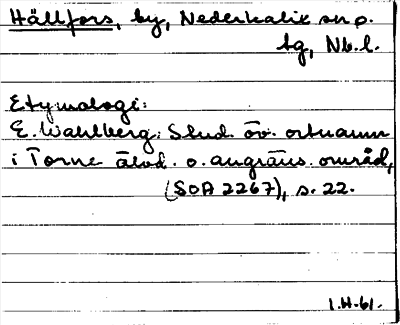 Hällfors, by, Nederkalix sn o.
tg, Nb.l.
Etymologi:
E. Wahlberg: Stud. öv. ortnamn
i Torne älvd. o. angräns. områd,
(SOA 2267), s. 22.
1.H.61.